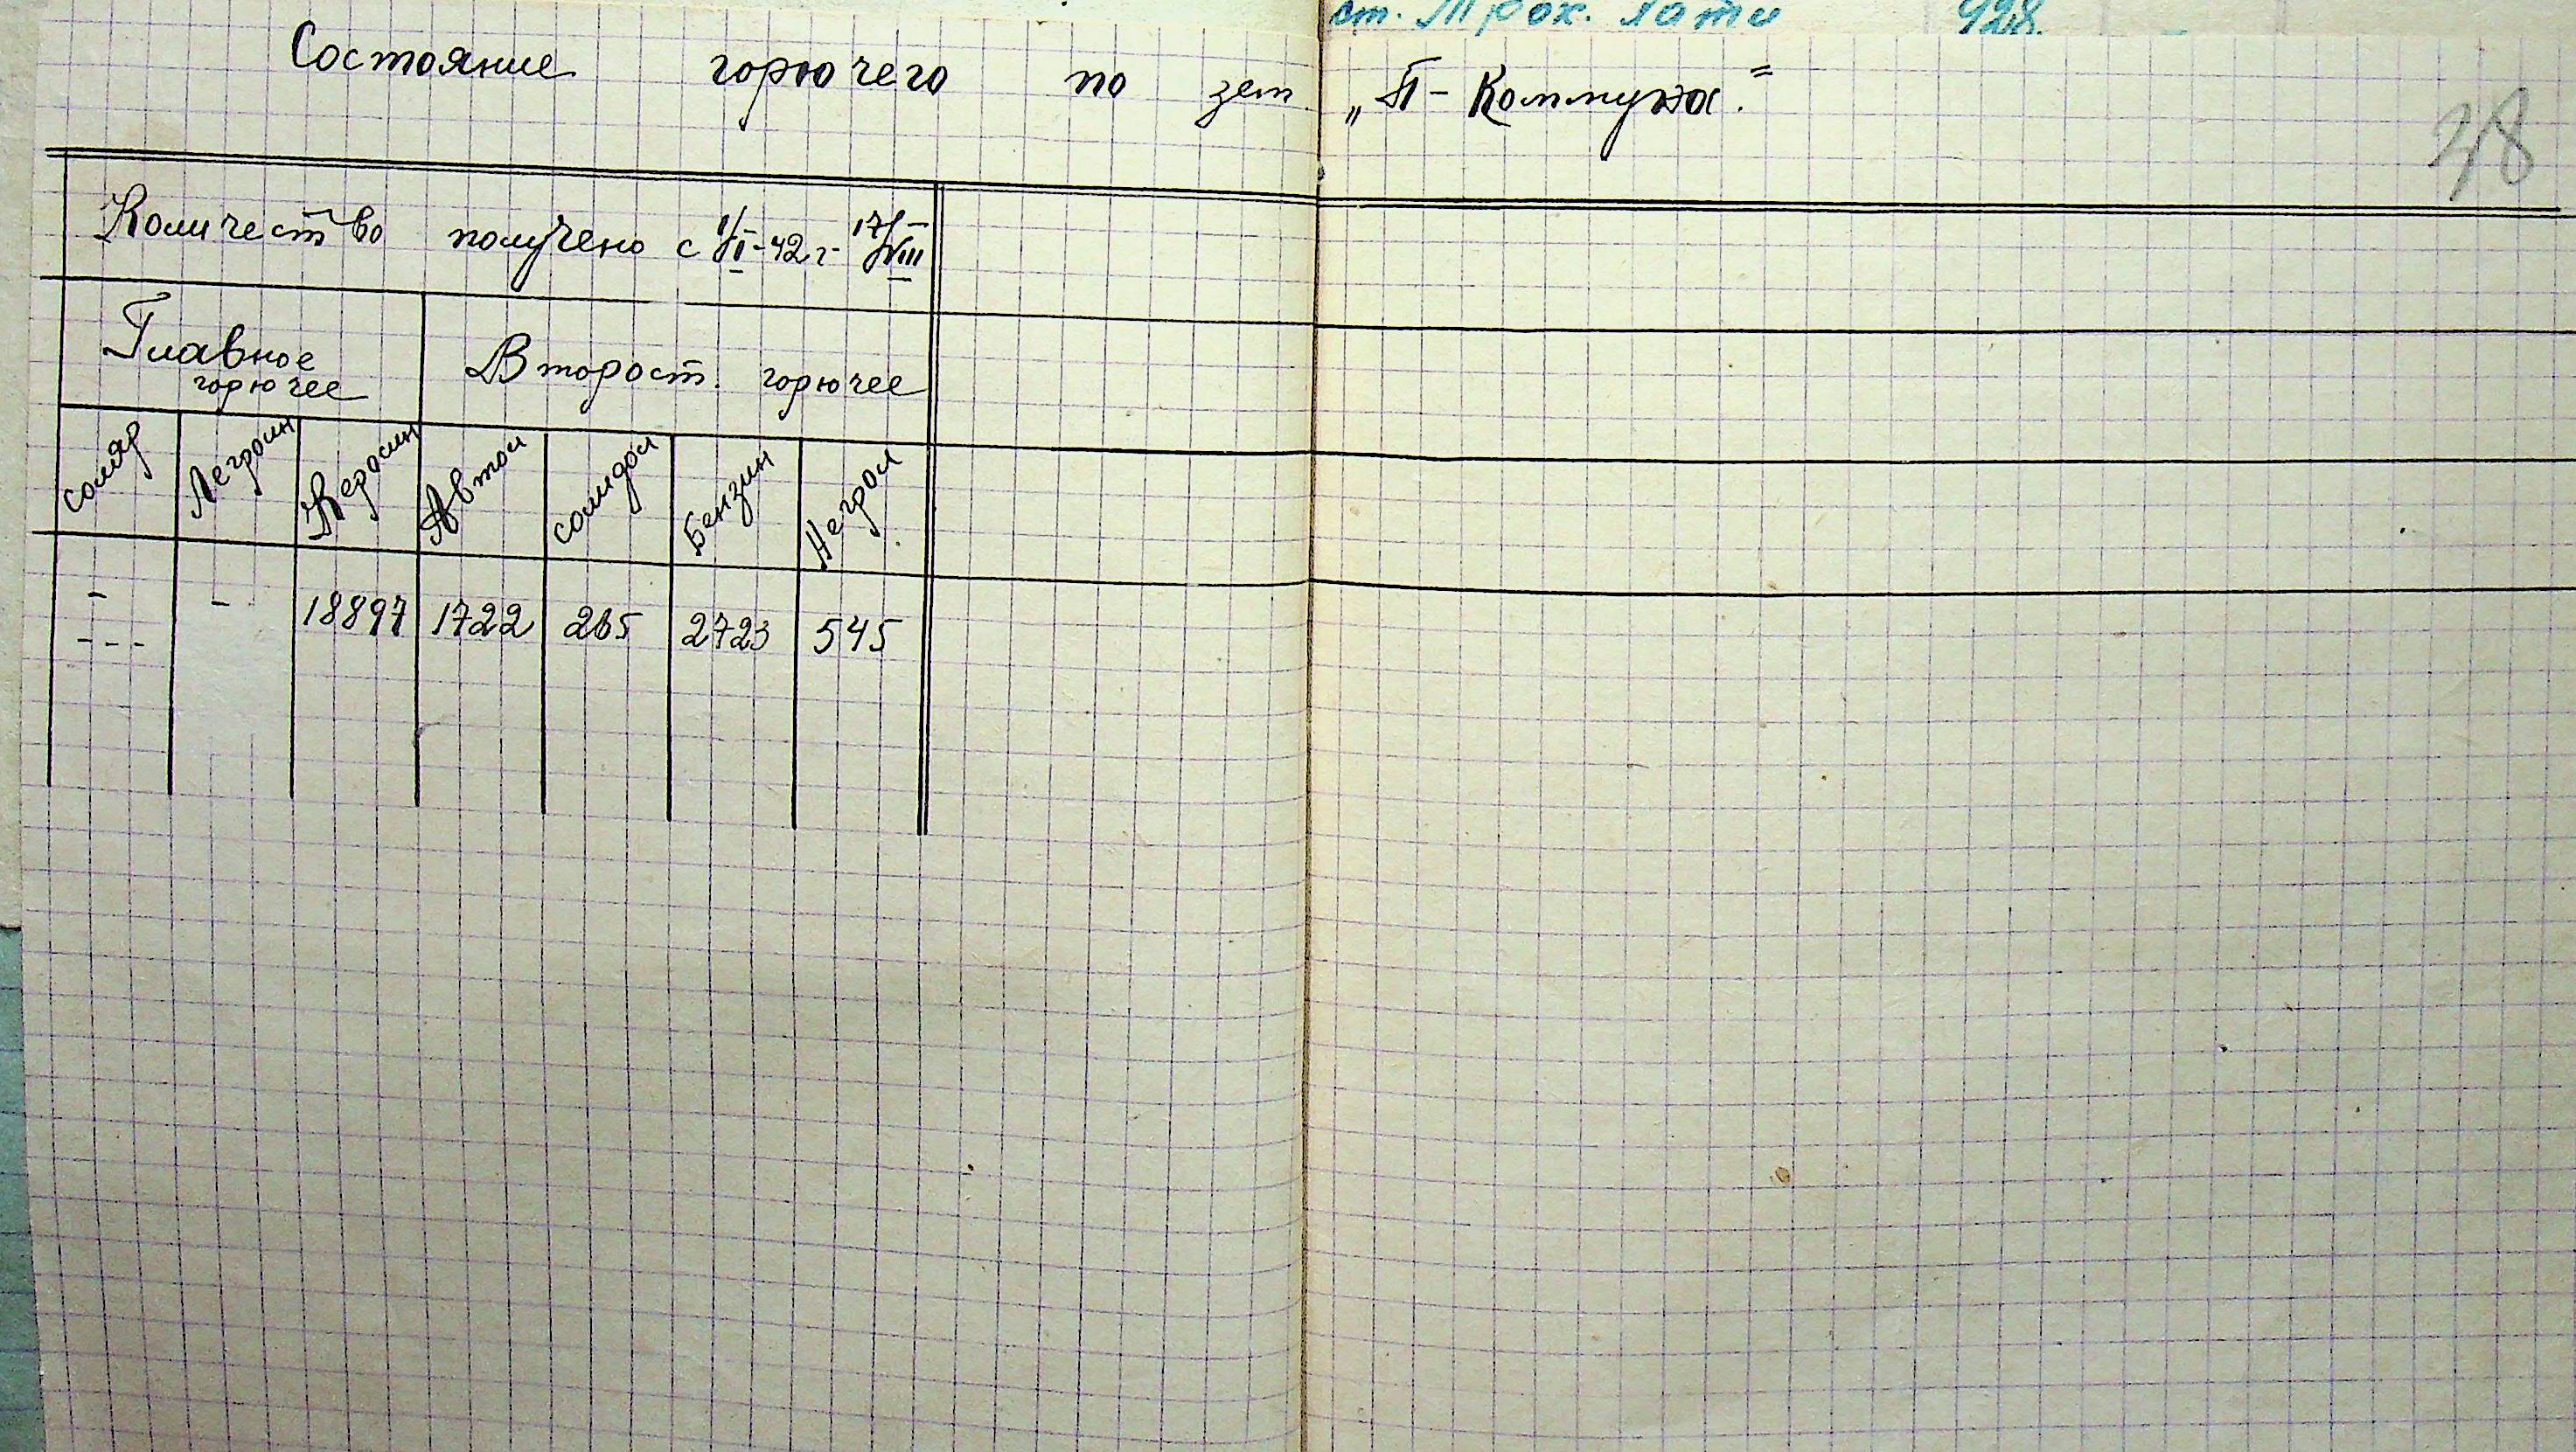 ст. Трох. лати 928.
Состояние горючего по зет „П-Коммуна."
38
Количество получено с 1/I-42 г- 17/VIII
Главное горючее
Второст. горючее
соляр Легроин Керосин Автол солидол Бензин Негрол
- - 18897 1722 265 2723 545
---